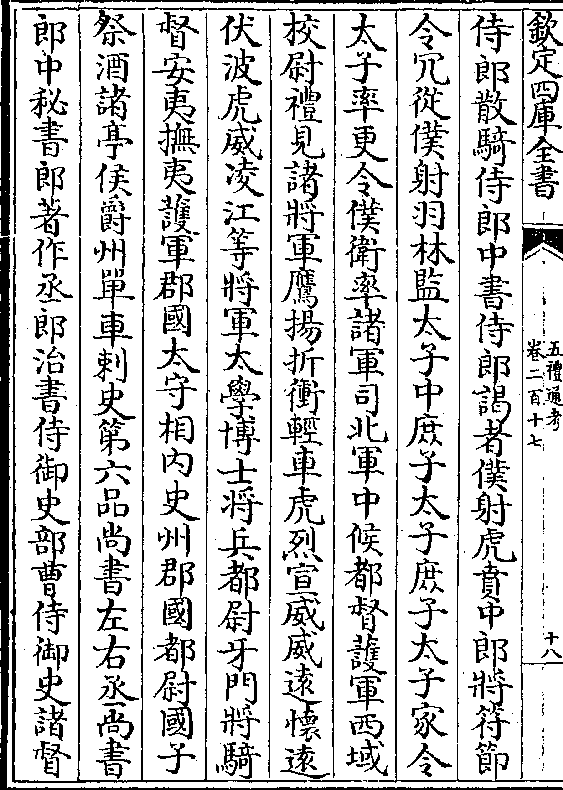 欽定四庫全書
五禮通考
卷二百十七
十八
侍郎散騎侍郎中書侍郎謁者僕射虎賁中郎將符節
令冗從僕射羽林監太子中庶子太子庶子太子家令
太子率更令僕衛率諸軍司北軍中候都督護軍西域
校尉禮見諸將軍鷹揚折衝輕車虎烈宣威威遠懷遠
伏波虎威凌江等將軍太學博士將兵都尉牙門將騎
督安夷撫夷護軍郡國太守相內史州郡國都尉國子
祭酒諸亭侯爵州單車刺史第六品尚書左右丞尚書
郎中秘書郎著作丞郎治書侍御史部曹侍御史諸督